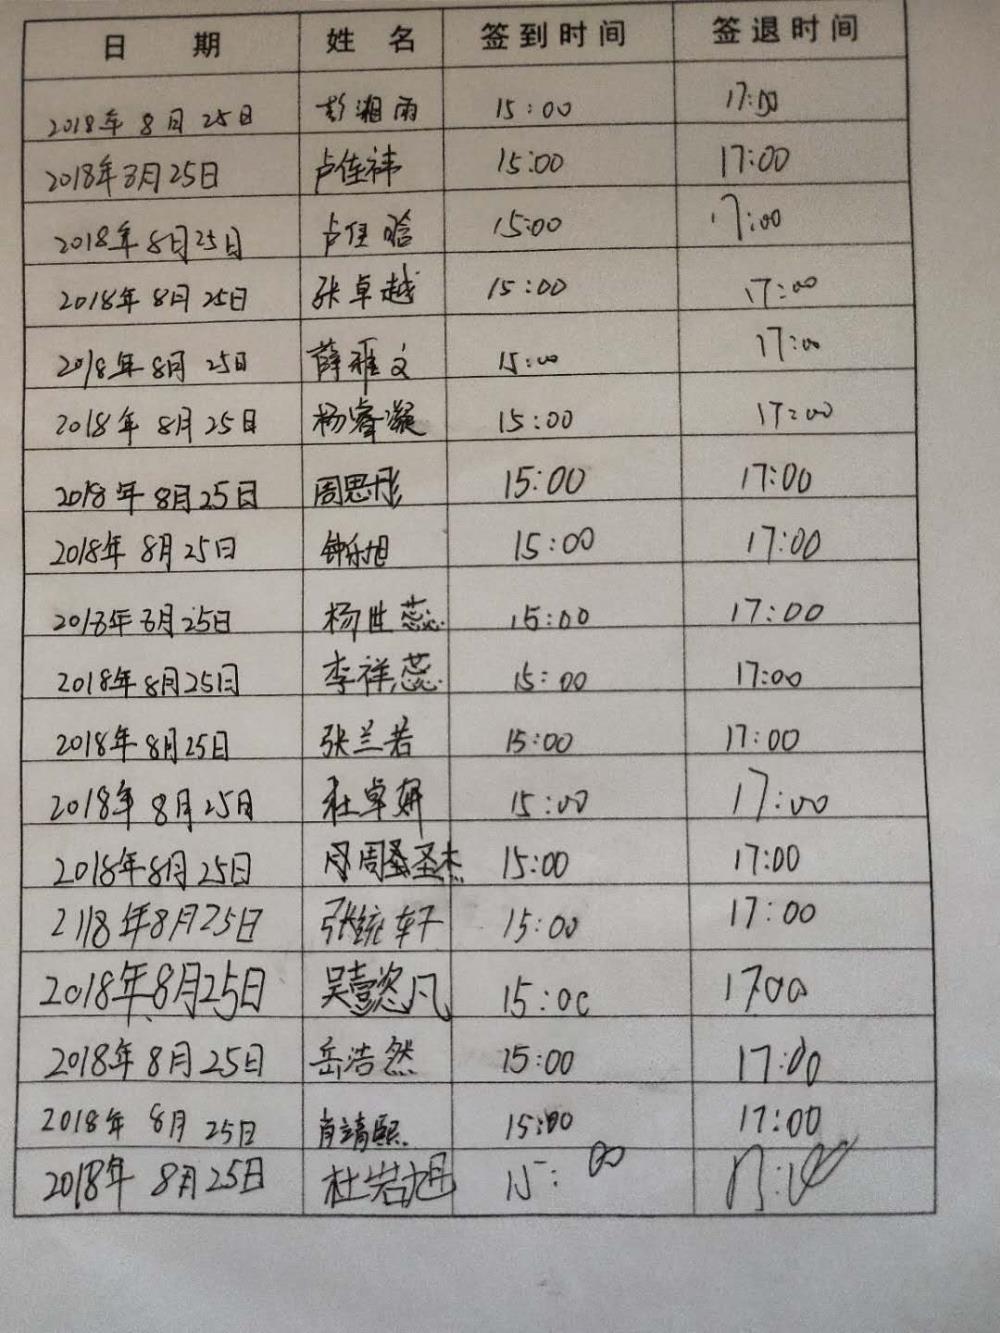 日 期 姓 名 签到时间 签退时间
2018年8月25日 彭湘雨 15:00 17:00
2018年8月25日 卢佳祎 15:00 17:00
2018年8月25日 卢佳晗 15:00 17:00
2018年8月25日 张卓越 15:00 17:00
2018年8月25日 薛雅文 15:00 17:00
2018年8月25日 杨睿凝 15:00 17:00
2018年8月25日 周思彤 15:00 17:00
2018年8月25日 钟乐旭 15:00 17:00
2018年8月25日 杨胜蕊 15:00 17:00
2018年8月25日 李祥蕊 15:00 17:00
2018年8月25日 张兰若 15:00 17:00
2018年8月25日 杜卓妍 15:00 17:00
2018年8月25日 15:00 17:00
2118年8月25日 15:00 17:00
2018年8月25日 15:00 1700
2018年8月25日 岳浩然 15:00 17:00
2018年8月25日 肖靖熙 15:00 17:00
2018年8月25日 杜若旭 15:00